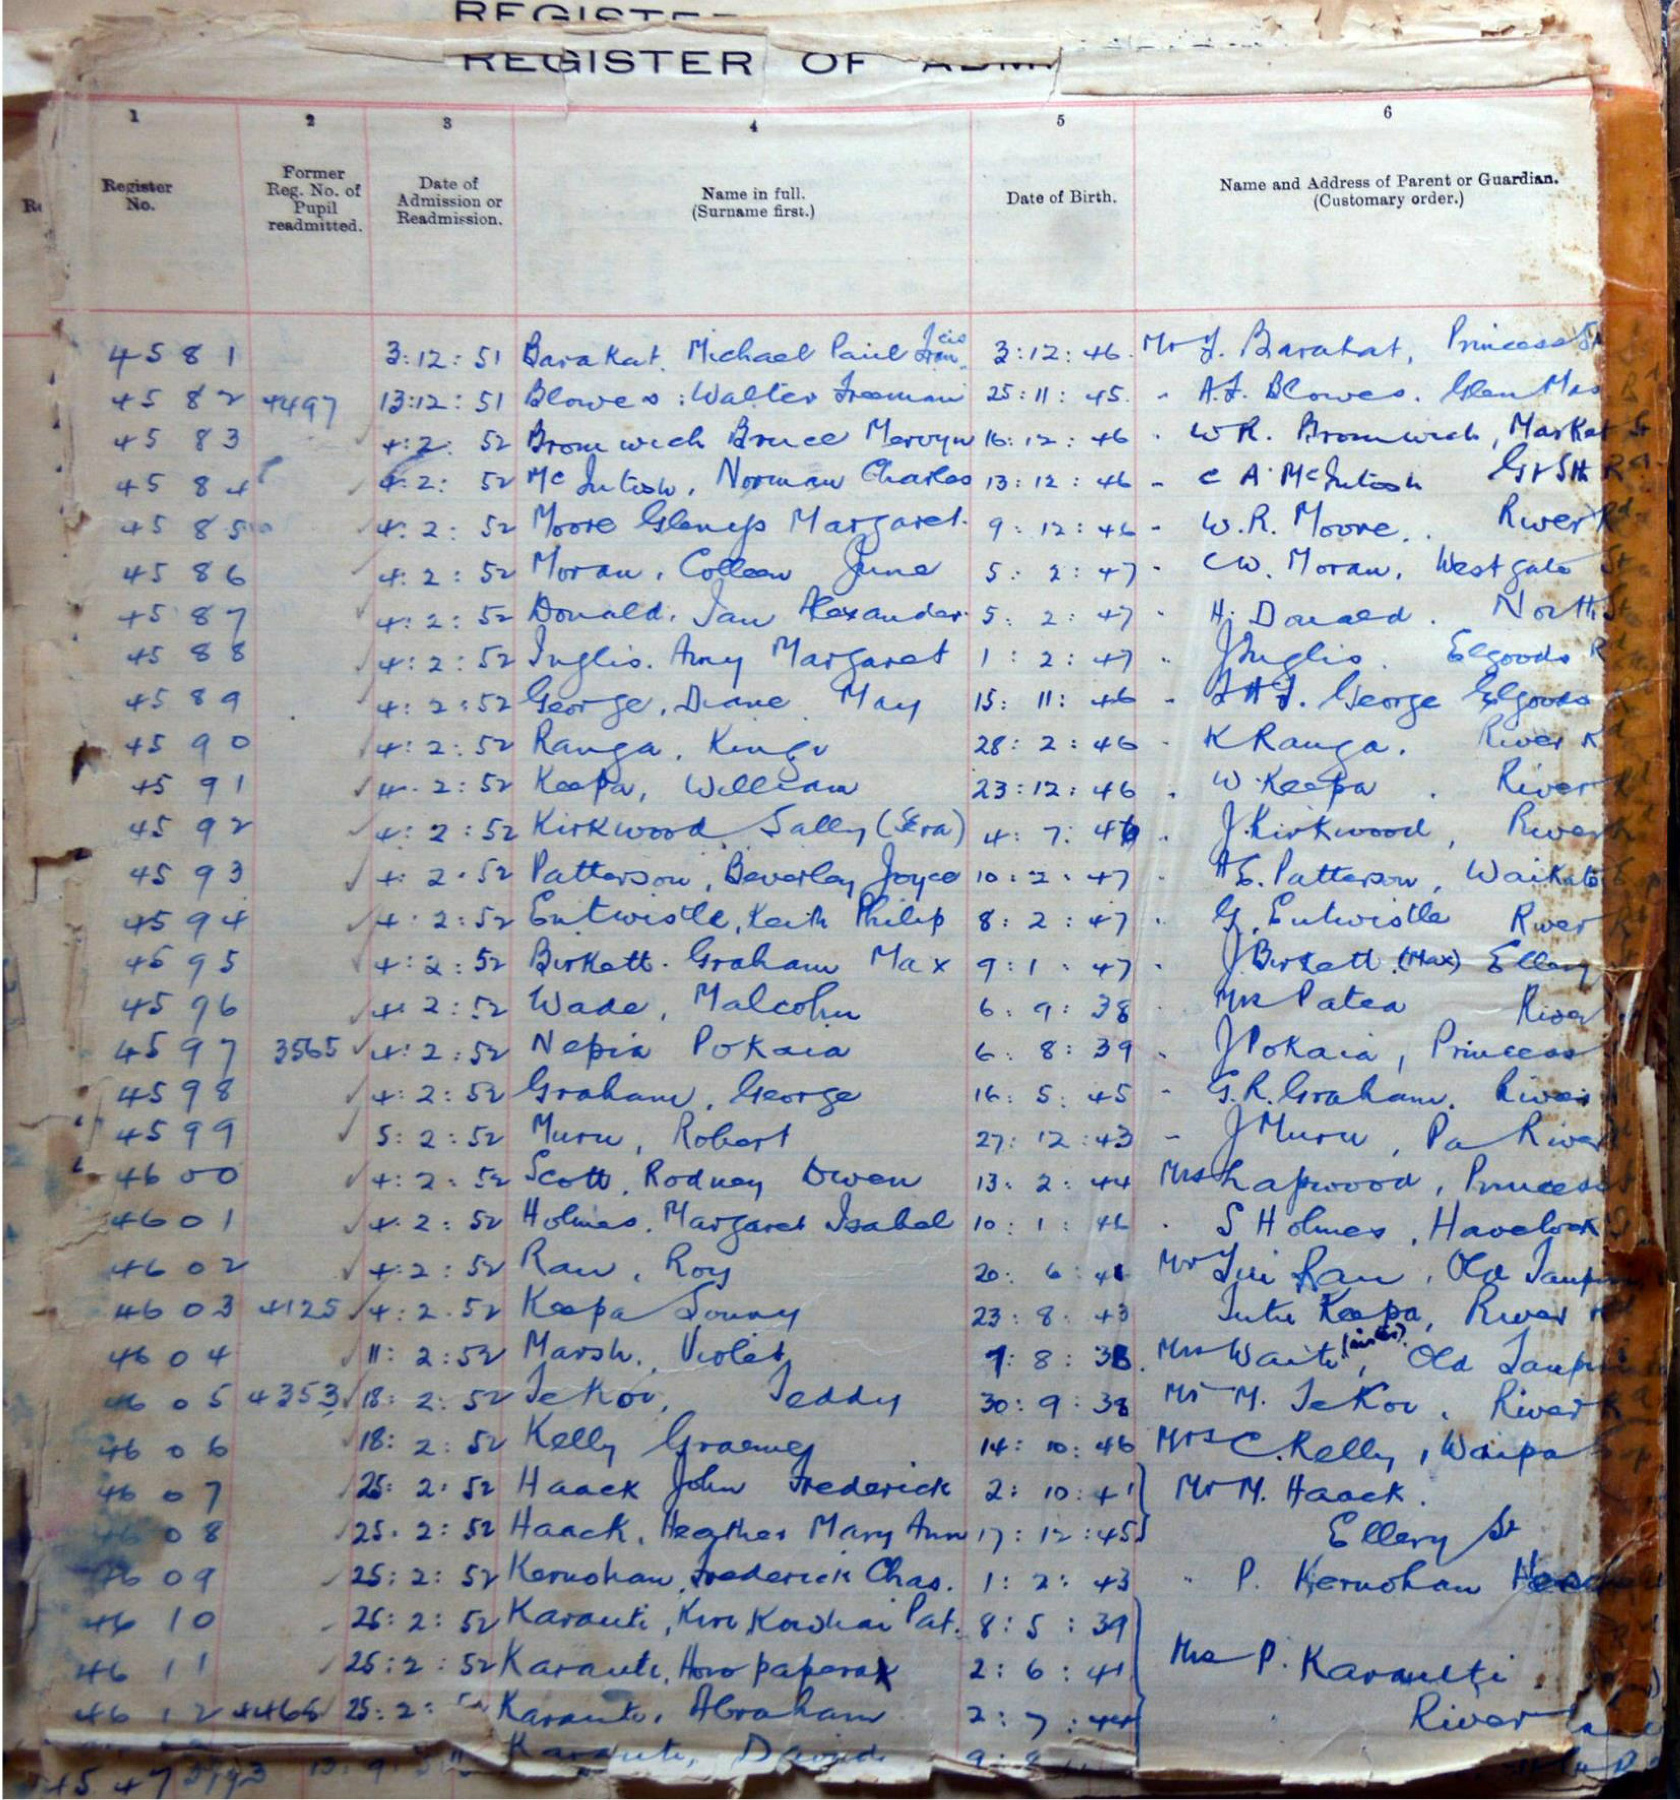 REGISTER
REGISTER OF ADM
1 2 3 4 5 6
Register No. Former Reg. No. of Pupil readmitted. Date of Admission or Readmission. Name in full. (Surname first.) Date of Birth. Name and Address of Parent or Guardian. (Customary order.)
4581 3:12:51 Barakat, Michael Paul 3:12:46 Mr J. Barakat, Princess St
4582 4497 13:12:51 Blowes, Walter Freeman 25:11:45 " A.F. Blowes. Glen Mas
4583 4:2:52 Bromwich Bruce Mervyn 16:12:46 " W R. Bromwich, Market St
4584 4:2:52 McIntosh, Norman Charles 13:12:46 " C A McIntosh Gt Sth R
4585 4:2:52 Moore Glenys Margaret 9:12:46 " W.R. Moore. River Rd
4586 4:2:52 Moran, Colleen June 5:2:47 " C W. Moran, Westgate St
4587 4:2:52 Donald, Ian Alexander 5:2:47 " H. Donald. North St
4588 4:2:52 Inglis. Amy Margaret 1:2:47 " J Inglis. Elgoods R
4589 4:2:52 George, Diane May 15:11:46 " George Elgoods
4590 4:2:52 Ranga, Kingi 28:2:46 " K Ranga. River R
4591 4:2:52 Keepa, William 23:12:46 " W. Keepa. River
4592 4:2:52 Kirkwood Sally (Sera) 4:7:46 " J. Kirkwood, River
4593 4:2:52 Patterson, Beverley Joyce 10:2:47 " A E. Patterson, Waikato E
4594 4:2:52 Entwistle, Keith Philip 8:2:47 " G. Entwistle River R
4595 4:2:52 Birkett. Graham Max 9:1:47 " J. Birkett (Max) Ellery
4596 4:2:52 Wade, Malcolm 6:9:38 Mrs Patea River
4597 3565 4:2:52 Nepia Pokaia 6:8:39 " J Pokaia, Princess
4598 4:2:52 Graham, George 16:5:45 " G.R. Graham. River
4599 5:2:52 Muru, Robert 27:12:43 " J Muru, Pa River
4600 4:2:52 Scott, Rodney Owen 13:2:44 Mrs Lapwood, Princess
4601 4:2:52 Holmes, Margaret Isabel 10:1:46 " S Holmes, Havelock S
4602 4:2:52 Rau, Roy 20:6:41 Mr Tui Rau, Old Taupiri
4603 4125 4:2:52 Keepa Sonny 23:8:43 Tutu Keepa, River
4604 11:2:52 Marsh, Violet 7:8:38 Mrs Waiti, (sister) Old Taupiri
4605 4353 18:2:52 TeKoi, Teddy 30:9:38 Mr M. TeKoi, River R
4606 18:2:52 Kelly Graeme 14:10:46 Mrs C. Kelly, Waipa
4607 25:2:52 Haack John Frederick 2:10:41 Mr M. Haack.
4608 25:2:52 Haack, Heather Mary Ann 17:12:45 Ellery St
4609 25:2:52 Kernohan, Frederick Chas. 1:2:43 " P. Kernohan
4610 25:2:52 Karauti, Kiri Kowhai Pat. 8:5:39
4611 25:2:52 Karauti, Horopapera 2:6:41 Mrs P. Karauti
4612 4465 25:2: Karauti, Abraham 2:7:44 River
Karauti, David
4547